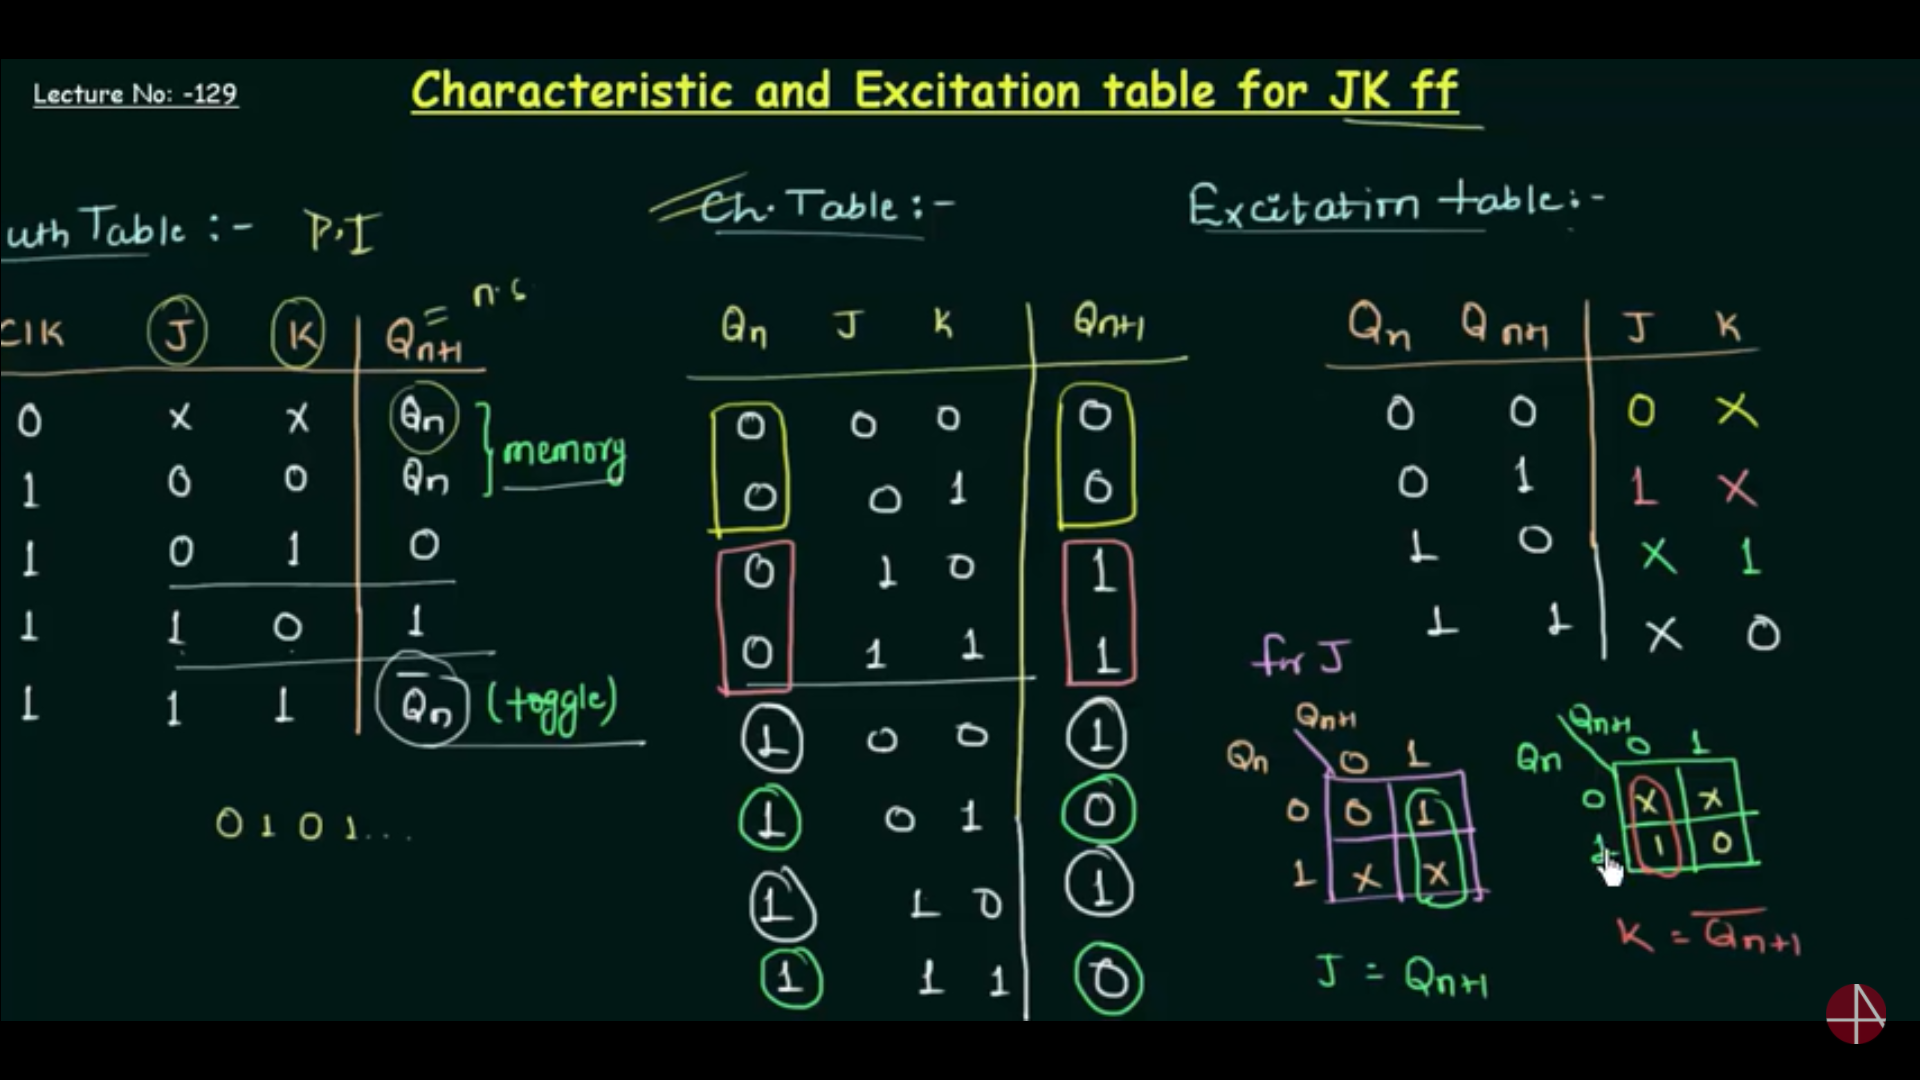 Lecture No: -129
Characteristic and Excitation table for JK ff
uth Table :- P.I
Clk J K Qn+1 = n.s
0 x x Qn
1 0 0 Qn
} memory
1 0 1 0
1 1 0 1
1 1 1 Q̅n (toggle)
0 1 0 1...
Ch. Table :-
Qn J K Qn+1
0 0 0 0
0 0 1 0
0 1 0 1
0 1 1 1
1 0 0 1
1 0 1 0
1 1 0 1
1 1 1 0
Excitation table :-
Qn Qn+1 J K
0 0 0 x
0 1 1 x
1 0 x 1
1 1 x 0
for J
Qn+1
Qn 0 1
0 0 1
1 x x
J = Qn+1
Qn+1
Qn 0 1
0 x x
1 1 0
K = Q̅n+1